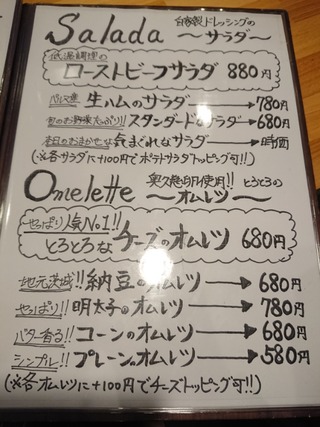 Salada 自家製ドレッシングの
〜サラダ〜
低温調理の
ローストビーフサラダ 880円
パルマ産 生ハムのサラダ→780円
旬のお野菜たっぷり!! スタンダードなサラダ→680円
本日のおまかせな 気まぐれなサラダ→時価
(※各サラダに+100円でポテトサラダトッピング可!!)
Omelette 奥久慈卵使用!! とろとろの
〜オムレツ〜
やっぱり人気No.1!!
とろとろな チーズのオムレツ 680円
地元茨城!! 納豆のオムレツ→680円
やっぱり!! 明太子のオムレツ→780円
バター香る!! コーンのオムレツ→680円
シンプル!! プレーンのオムレツ→580円
(※各オムレツに+100円でチーズトッピング可!!)